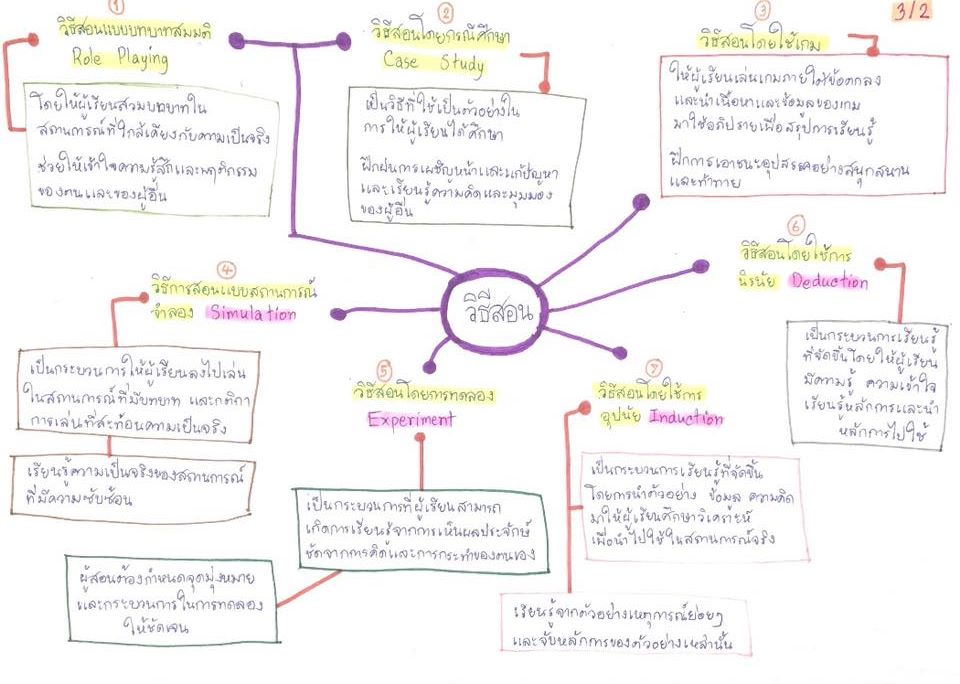 3/2
①
วิธีสอนแบบบทบาทสมมติ
Role Playing
โดยให้ผู้เรียนสวมบทบาทใน
สถานการณ์ที่ใกล้เคียงกับความเป็นจริง
ช่วยให้เข้าใจความรู้สึกและพฤติกรรม
ของตนและของผู้อื่น
②
วิธีสอนโดยกรณีศึกษา
Case Study
เป็นวิธีที่ใช้เป็นตัวอย่างใน
การให้ผู้เรียนได้ศึกษา
ฝึกฝนการเผชิญหน้าและแก้ปัญหา
และเรียนรู้ความคิดและมุมมอง
ของผู้อื่น
③
วิธีสอนโดยใช้เกม
ให้ผู้เรียนเล่นเกมภายใต้ข้อตกลง
และนำเนื้อหาและข้อมูลของเกม
มาใช้อภิปรายเพื่อสรุปการเรียนรู้
ฝึกการเอาชนะอุปสรรคอย่างสนุกสนาน
และท้าทาย
วิธีสอน
④
วิธีการสอนแบบสถานการณ์
จำลอง Simulation
เป็นกระบวนการให้ผู้เรียนลงไปเล่น
ในสถานการณ์ที่มีบทบาท และกติกา
การเล่นที่สะท้อนความเป็นจริง
เรียนรู้ความเป็นจริงของสถานการณ์
ที่มีความซับซ้อน
⑤
วิธีสอนโดยการทดลอง
Experiment
เป็นกระบวนการที่ผู้เรียนสามารถ
เกิดการเรียนรู้จากการเห็นผลประจักษ์
ชัดจากการคิดและการกระทำของตนเอง
ผู้สอนต้องกำหนดจุดมุ่งหมาย
และกระบวนการในการทดลอง
ให้ชัดเจน
⑥
วิธีสอนโดยใช้การ
นิรนัย Deduction
เป็นกระบวนการเรียนรู้
ที่จัดขึ้นโดยให้ผู้เรียน
มีความรู้ ความเข้าใจ
เรียนรู้หลักการและนำ
หลักการไปใช้
วิธีสอนโดยใช้การ
อุปนัย Induction
เป็นกระบวนการเรียนรู้ที่จัดขึ้น
โดยการนำตัวอย่าง ข้อมูล ความคิด
มาให้ผู้เรียนศึกษาวิเคราะห์
เพื่อนำไปใช้ในสถานการณ์จริง
เรียนรู้จากตัวอย่างเหตุการณ์ย่อยๆ
และจับหลักการของตัวอย่างเหล่านั้น